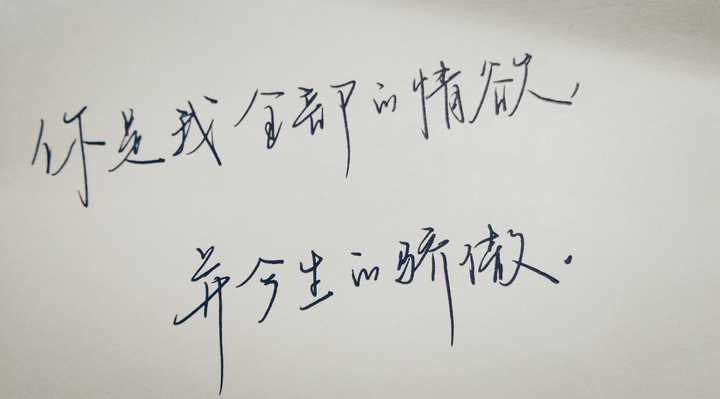 你是我全部的情欲，
并今生的骄傲.